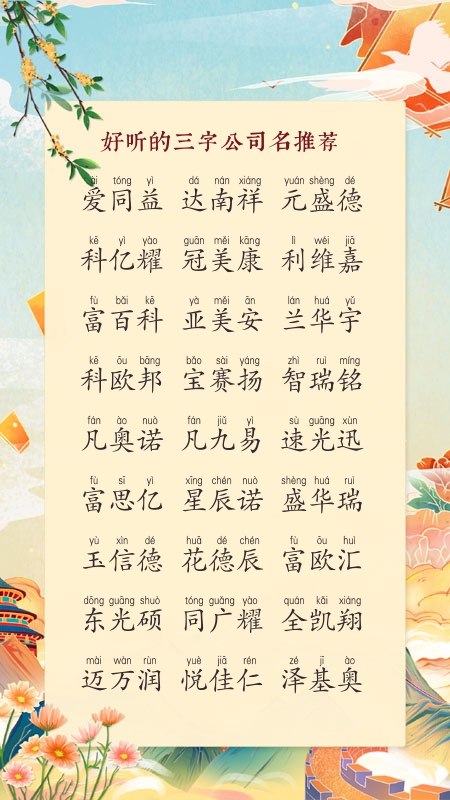 好听的三字公司名推荐
ài tóng yì dá nán xiáng yuán shèng dé
爱同益 达南祥 元盛德
kē yì yào guān měi kāng lì wéi jiā
科亿耀 冠美康 利维嘉
fù bǎi kē yà měi ān lán huá yǔ
富百科 亚美安 兰华宇
kē ōu bāng bǎo sài yáng zhì ruì míng
科欧邦 宝赛扬 智瑞铭
fán ào nuò fán jiǔ yì sù guāng xùn
凡奥诺 凡九易 速光迅
fù sī yì xīng chén nuò shèng huá ruì
富思亿 星辰诺 盛华瑞
yù xìn dé huā dé chén fù ōu huì
玉信德 花德辰 富欧汇
dōng guāng shuò tóng guǎng yào quán kǎi xiáng
东光硕 同广耀 全凯翔
mài wàn rùn yuè jiā rén zé jī ào
迈万润 悦佳仁 泽基奥